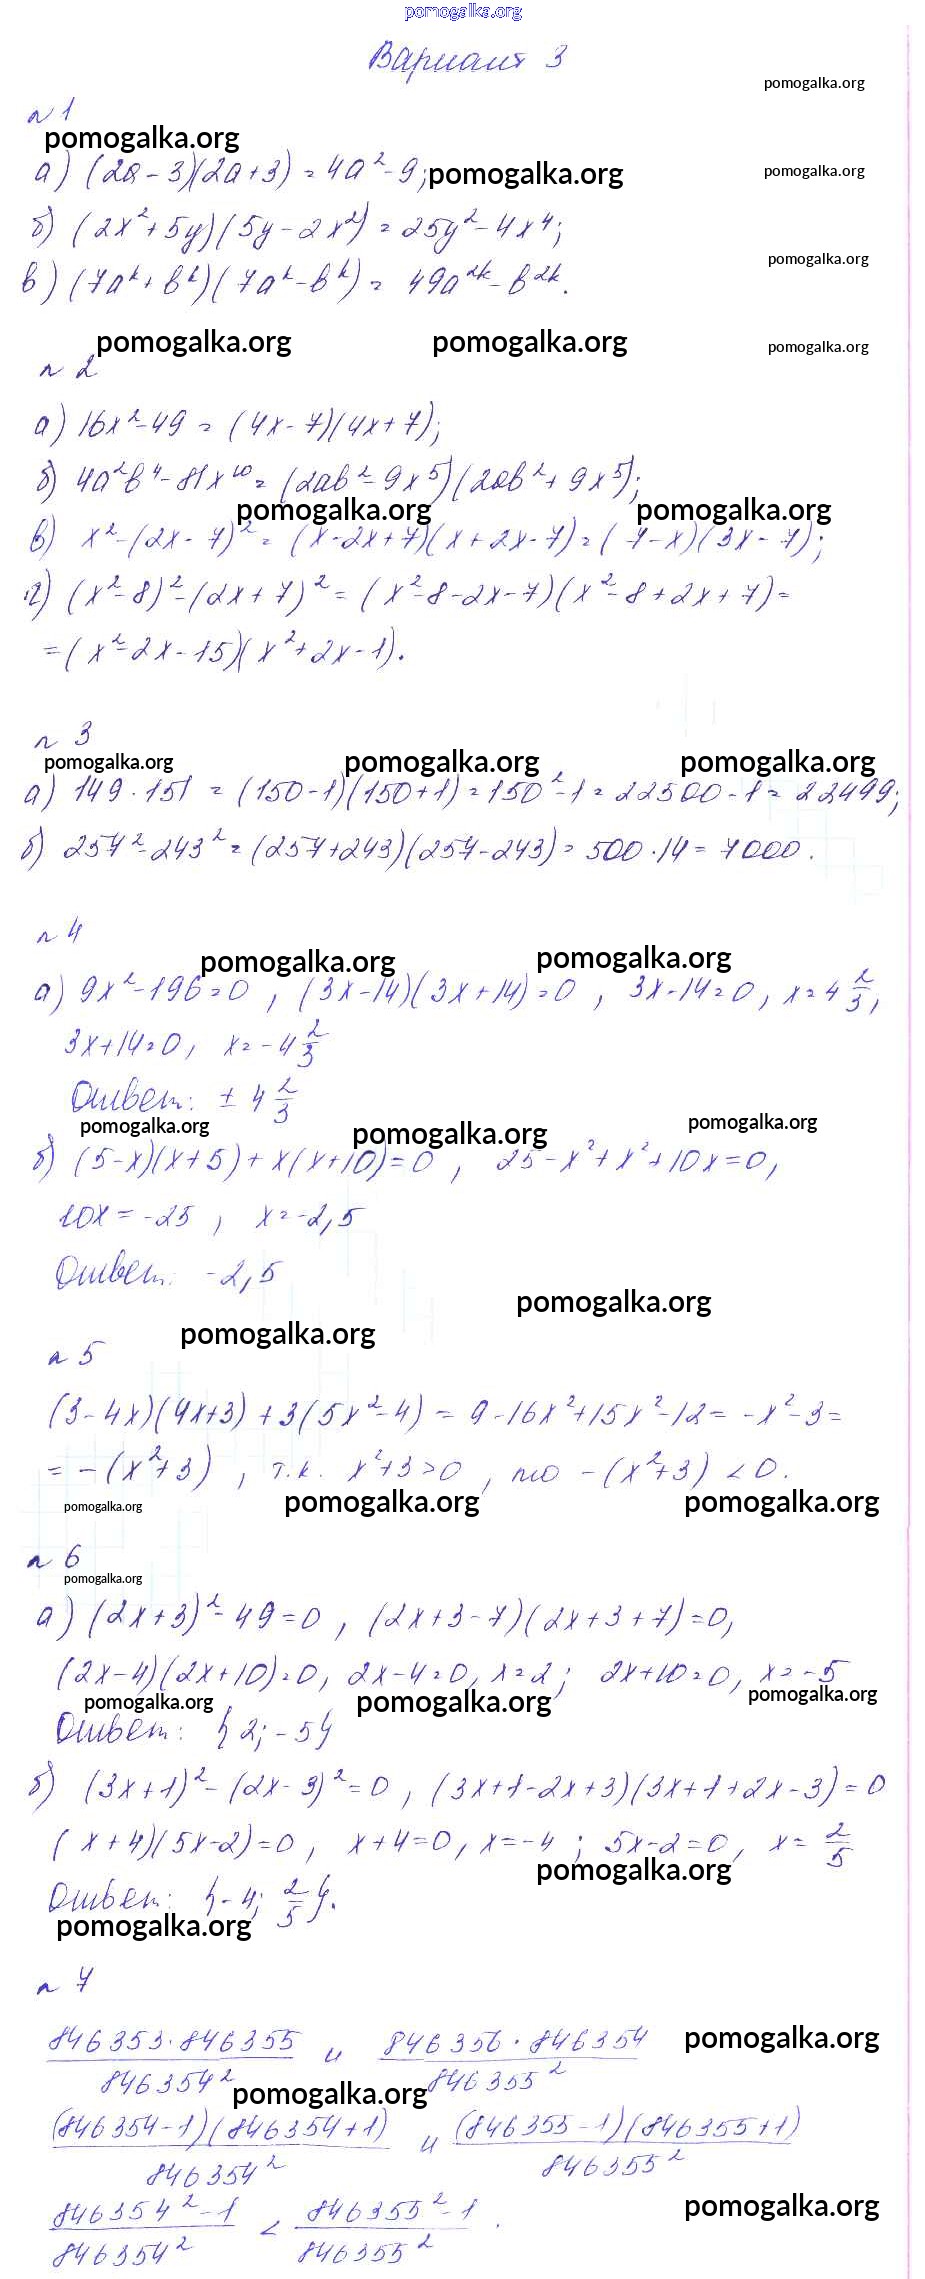 pomogalka.org
Вариант 3
pomogalka.org
№ 1
pomogalka.org
а) (2a - 3)(2a + 3) = 4a² - 9; pomogalka.org pomogalka.org
б) (2x² + 5y)(5y - 2x²) = 25y² - 4x⁴;
в) (7aᵏ + bᵏ)(7aᵏ - bᵏ) = 49a²ᵏ - b²ᵏ. pomogalka.org
pomogalka.org pomogalka.org pomogalka.org
№ 2
а) 16x² - 49 = (4x - 7)(4x + 7);
б) 4a²b⁴ - 81x¹⁰ = (2ab² - 9x⁵)(2ab² + 9x⁵);
pomogalka.org pomogalka.org
в) x² - (2x - 7)² = (x - 2x + 7)(x + 2x - 7) = (7 - x)(3x - 7);
г) (x² - 8)² - (2x + 7)² = (x² - 8 - 2x - 7)(x² - 8 + 2x + 7) =
= (x² - 2x - 15)(x² + 2x - 1).
№ 3
pomogalka.org pomogalka.org pomogalka.org
а) 149 · 151 = (150 - 1)(150 + 1) = 150² - 1 = 22500 - 1 = 22499;
б) 257² - 243² = (257 + 243)(257 - 243) = 500 · 14 = 7000.
№ 4
pomogalka.org pomogalka.org
а) 9x² - 196 = 0, (3x - 14)(3x + 14) = 0, 3x - 14 = 0, x = 4 2/3,
3x + 14 = 0, x = - 4 2/3
Ответ: ± 4 2/3
pomogalka.org pomogalka.org pomogalka.org
б) (5 - x)(x + 5) + x(x + 10) = 0, 25 - x² + x² + 10x = 0,
10x = -25, x = -2,5
Ответ: -2,5
pomogalka.org
pomogalka.org
№ 5
(3 - 4x)(4x + 3) + 3(5x² - 4) = 9 - 16x² + 15x² - 12 = -x² - 3 =
= -(x² + 3), т.к. x² + 3 > 0, то -(x² + 3) < 0.
pomogalka.org pomogalka.org pomogalka.org
№ 6
pomogalka.org
а) (2x + 3)² - 49 = 0, (2x + 3 - 7)(2x + 3 + 7) = 0,
(2x - 4)(2x + 10) = 0, 2x - 4 = 0, x = 2; 2x + 10 = 0, x = -5
pomogalka.org pomogalka.org pomogalka.org
Ответ: {2; -5}
б) (3x + 1)² - (2x - 3)² = 0, (3x + 1 - 2x + 3)(3x + 1 + 2x - 3) = 0
(x + 4)(5x - 2) = 0, x + 4 = 0, x = -4; 5x - 2 = 0, x = 2/5
pomogalka.org
Ответ: {-4; 2/5}.
pomogalka.org
№ 7
846353 · 846355 / 846354² и 846356 · 846354 / 846355² pomogalka.org
pomogalka.org
(846354 - 1)(846354 + 1) / 846354² и (846355 - 1)(846355 + 1) / 846355²
846354² - 1 / 846354² < 846355² - 1 / 846355². pomogalka.org